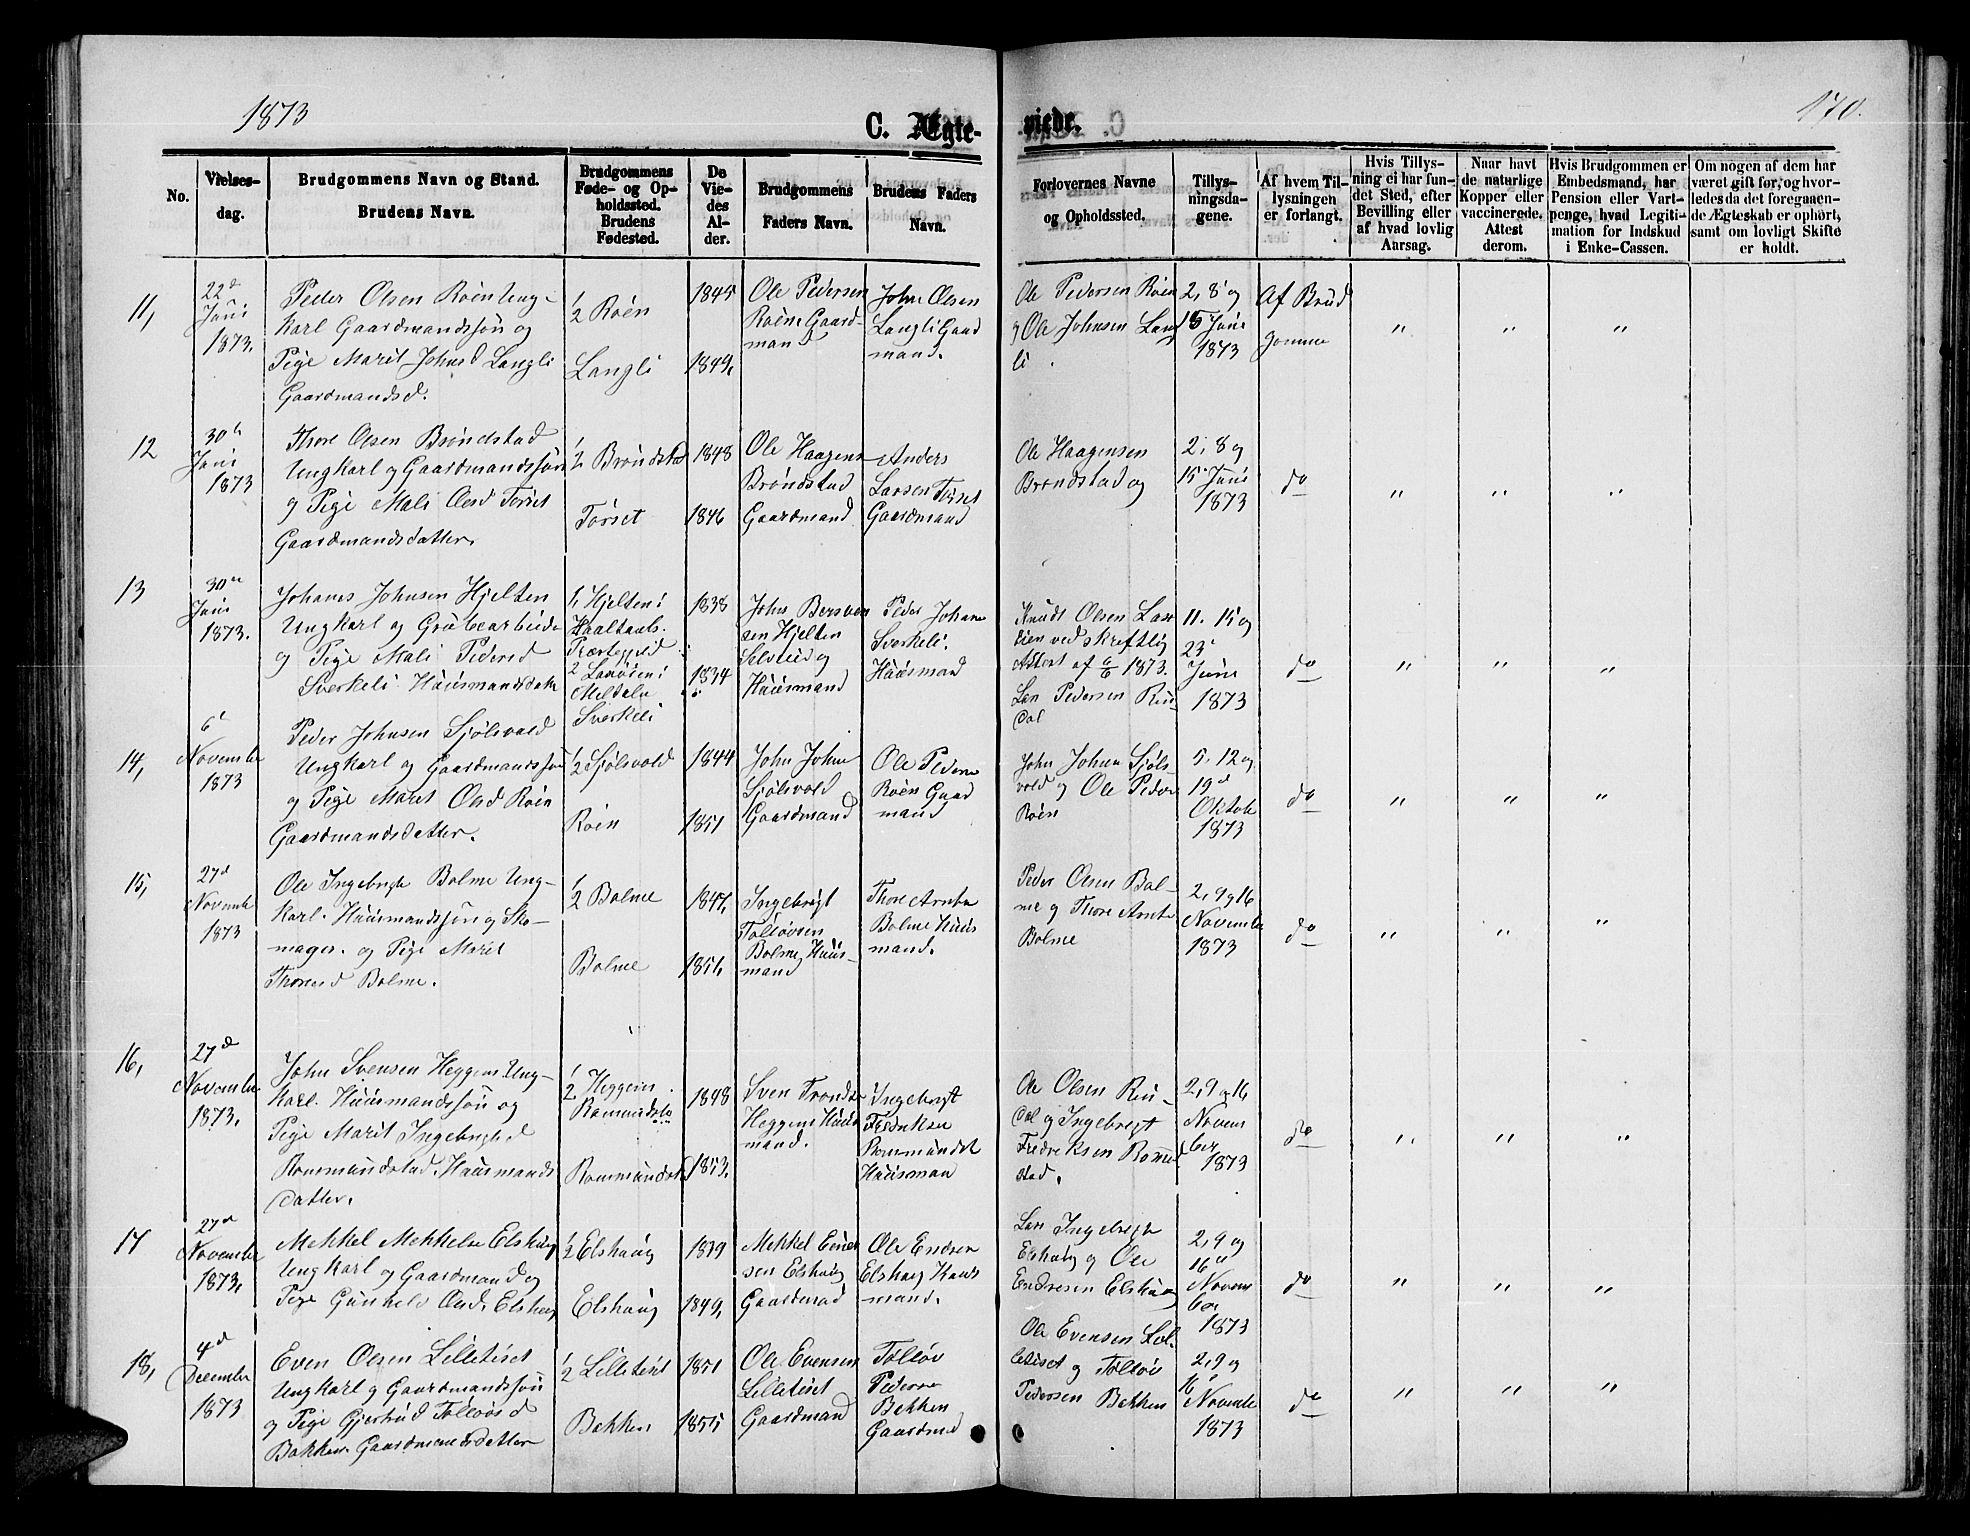 1873
170.
C. Ægte-
viede.
No.
Vielses-
dag.
Brudgommens Navn og Stand.
Brudens Navn.
Brudgommens
Føde- og Op-
holdssted.
Brudens
Fødested.
De
Vie-
des
Al-
der.
Brudgommens
Faders Navn.
Brudens Faders
Navn.
Forlovernes Navne
og Opholdssted.
Tillys-
ningsda-
gene.
Af hvem Til-
lysningen
er forlangt.
Hvis Tillys-
ning ei har fun-
det Sted, efter
Bevilling eller
af hvad lovlig
Aarsag.
Naar havt
de naturlige
Kopper eller
vaccinerede.
Attest
derom.
Hvis Brudgommen er
Embedsmand, har
Pension eller Vart-
penge, hvad Legiti-
mation for Indskud
i Enke-Cassen.
Om nogen af dem har
været gift før, og hvor-
ledes da det foregaaen-
de Ægteskab er ophørt,
samt om lovligt Skifte
er holdt.
11,
22d
Juni
1873.
Peder Olsen Roen Ung-
karl Gaardmandssøn og
Pige Marit Johnsd Langli
Gaardmandsd.
1/2 Roen
Langli
1845
1849,
Ole Pedersen
Roen Gaard-
mand
John Olsen
Langli Gaard
mand.
Ole Pedersen Roen
og Ole Johnsen Lang
li.
2, 8 og
15 Juni
1873
Af Brud
gommen
"
"
"
12
30te
Juni
1873
Thore Olsen Brøndstad
Ungkarl og Gaardmandssøn
og Pige Mali Olsd Torset
Gaardmandsdatter,
1/2 Brøndstad
Torset
1848
1846
Ole Haagens
Brøndstad
Gaardmand
Anders
Larsen Torset
Gaardmand
Ole Haagensen
Brøndstad og
2, 8 og
15 Juni
1873
do
"
"
"
13
30te
Juni
1873.
Johanes Johnsen Hjelten
Ungkarl og Grubearbeide
og Pige Mali Pedersd
Sverkeli Huusmandsdatt
1, Hjelten i
2
Meldalen
Sverkeli
1838
1834
John Bersven
sen Hjelten
Huusmand
Peder Johane
Sverkeli.
Huusmand
Knudt Olsen
ved skriftlig
Attest af 6/6 1873.
Lars Pedersen Ruu-
dal
11. 15 og
23
Juni
1873
do
"
"
"
14,
6te
November
1873
Peder Johnsen Sjølsvold
Ungkarl og Gaardmandssøn
og Pige Marit Olsd Roen
Gaardmandsdatter.
1/2 Sjølsvold
Roen
1844
1851
John John
Sjølsvold
Gaardmand
Ole Peders
Roen Gaard
mand
John Johnsen Sjøls-
vold og Ole Peder
Roen
5, 12 og
19d
Oktob
1873
do
"
"
"
15,
27d
Novemb
1873
Ole Ingebrigts Bolme Ung-
karl. Huusmandssøn og Sko-
mager. og Pige Marit
Thoresd Bolme.
1/2 Bolme
Bolme
1847,
1851,
Ingebrigt
Tolløvsen
Bolme Huus-
mand
Thore Arnts
Bolme Huus
mand.
Peder Olsen Bol-
me og Thore Arnts
Bolme
2, 9 og 16
November
1873
do
"
"
"
16,
27d
November
1873,
John Svensen Heggem Ung-
karl. Huusmandssøn og
Pige Marit Ingebrigtsd
Rommundstad. Huusmands
datter.
1/2 Heggem
Rommundst
1848
1853.
Sven Tronds
Heggem Huus
mand.
Ingebrigt
Fredriksen
Rommundst
Huusman
Ole Olsen Ruu-
dal og Ingebrigt
Fredriksen Romund
stad.
2, 9 og 16
Novem
ber
1873
do
"
"
"
17
27d
November
1873,
Mekkel Mekkelsen Elshaug
Ungkarl og Gaardmand og
Pige Gunhild Olsd. Elshaug
1/2 Elshaug
Elshaug
1849,
Mekkel Einer
sen Elshaug
Gaardmand
Ole Endresen
Elshaug Huus
mand.
Lars Ingebrigts
Elshaug og Ole
Endresen Elshaug
2, 9 og
16d
Novem
ber
1873
do
"
"
"
18,
4d
December
1873
Even Olsen Lilletiset
Ungkarl og Gaardmandssøn
og Pige Gjertrud Tolløvsd
Bakken Gaardmandsdatter
1/2 Lilletiset
Bakken
1851
1855
Ole Evensen
Lilletiset
Gaardmand
Tolløv
Peders
Bakken
Gaardmand
Ole Evensen Lil-
letiset og Tolløv
Pedersen Bakken
2, 9 og
16
Novemb
1873
do
"
"
"